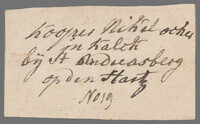 Kooper Nikel ocker
in Kalck
bÿ St Andreasberg
op den Hartz
No 19